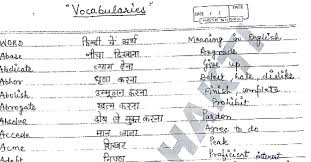 "Vocabularies"
DATE
WORD हिन्दी में अर्थ Meaning in English
Abase नीचा दिखाना Degrade
Abdicate त्याग देना Give up
Abhor घृणा करना Detest, hate, dislike
Abolish उन्मूलन करना Finish, complete
Abrogate खत्म करना Prohibit
Absolve दोष से मुक्त करना Pardon
Accede मान जाना Agree to do
Acme शिखर Peak
Adept निपुण Proficient